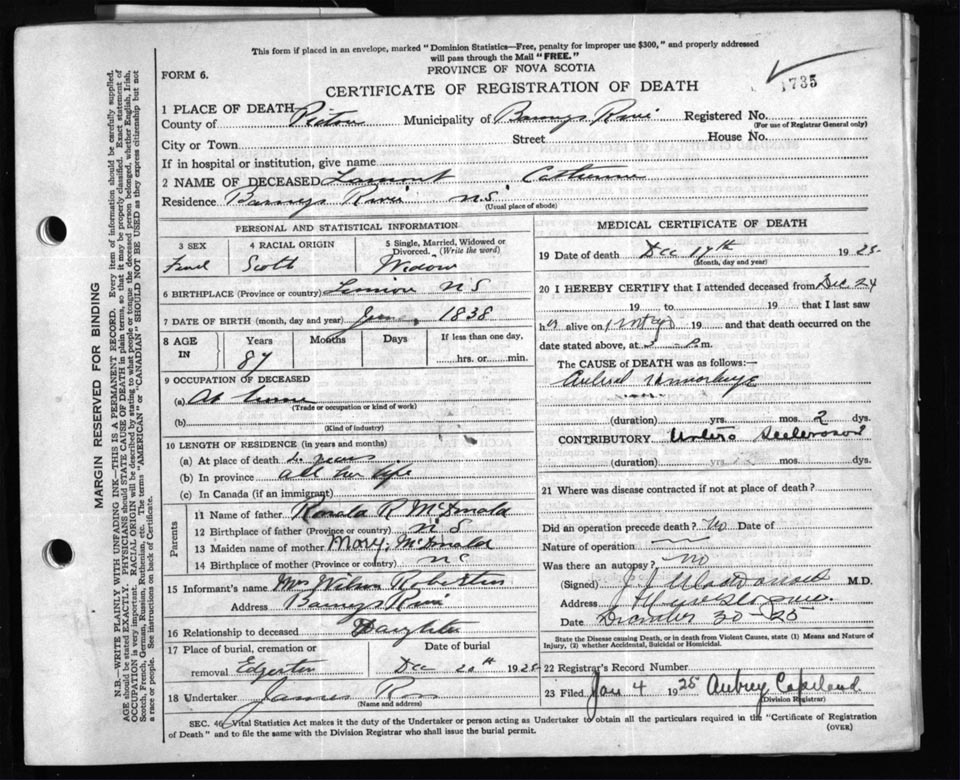 This form if placed in an envelope, marked "Dominion Statistics—Free, penalty for improper use $300," and properly addressed
will pass through the Mail "FREE."
PROVINCE OF NOVA SCOTIA
FORM 6.
CERTIFICATE OF REGISTRATION OF DEATH
1735
1 PLACE OF DEATH
County of Pictou Municipality of Barneys River Registered No.
(For use of Registrar General only)
City or Town Street House No.
If in hospital or institution, give name
2 NAME OF DECEASED Lamont Catherine
Residence Barneys River N.S.
(Usual place of abode)
PERSONAL AND STATISTICAL INFORMATION
3 SEX 4 RACIAL ORIGIN 5 Single, Married, Widowed or Divorced. (Write the word)
Scotch Widow
6 BIRTHPLACE (Province or country) N S
7 DATE OF BIRTH (month, day and year) 1838
8 AGE IN Years Months Days If less than one day,
87 hrs. or min.
9 OCCUPATION OF DECEASED
(a) At home
(Trade or occupation or kind of work)
(b)
(Kind of industry)
10 LENGTH OF RESIDENCE (in years and months)
(a) At place of death years
(b) In province all her life
(c) In Canada (if an immigrant)
Parents
11 Name of father Ronald R McDonald
12 Birthplace of father (Province or country) N S
13 Maiden name of mother Mary McDonald
14 Birthplace of mother (Province or country) N S
15 Informant's name Mrs Wilson Robertson
Address Barneys River
16 Relationship to deceased Daughter
17 Place of burial, cremation or removal Date of burial
Edgerton Dec 20th 1925
18 Undertaker James
(Name and address)
MEDICAL CERTIFICATE OF DEATH
19 Date of death Dec 17th 1925
(Month, day and year)
20 I HEREBY CERTIFY that I attended deceased from Dec. 24
19 to 19 that I last saw
her alive on 19 and that death occurred on
date stated above, at p.m.
The CAUSE OF DEATH was as follows:—
Cerebral Hemorrhage
(duration) yrs. mos. 2 dys.
CONTRIBUTORY
(duration) yrs. mos. dys.
21 Where was disease contracted if not at place of death?
Did an operation precede death? No Date of
Nature of operation
Was there an autopsy? No
(Signed) M.D.
Address
Date December 30 - 25
State the Disease causing Death, or in death from Violent Causes, state (1) Means and Nature of
Injury, (2) whether Accidental, Suicidal or Homicidal.
22 Registrar's Record Number
23 Filed Jan 4 1925 Aubrey Copeland
(Division Registrar)
SEC. 46 Vital Statistics Act makes it the duty of the Undertaker or person acting as Undertaker to obtain all the particulars required in the "Certificate of Registration
of Death" and to file the same with the Division Registrar who shall issue the burial permit. (OVER)
MARGIN RESERVED FOR BINDING
N.B.—WRITE PLAINLY WITH UNFADING INK—THIS IS A PERMANENT RECORD. Every item of information should be carefully supplied.
AGE should be stated EXACTLY. PHYSICIANS should STATE CAUSE OF DEATH in plain terms, so that it may be properly classified. Exact statement of
OCCUPATION is very important. RACIAL ORIGIN will be described by stating to what people or tongue the deceased person belonged, whether English, Irish,
Scotch, French, German, Russian, Ruthenian, etc. The terms "AMERICAN" or "CANADIAN" SHOULD NOT BE USED as they express citizenship but not
a race or people. See instructions on back of Certificate.